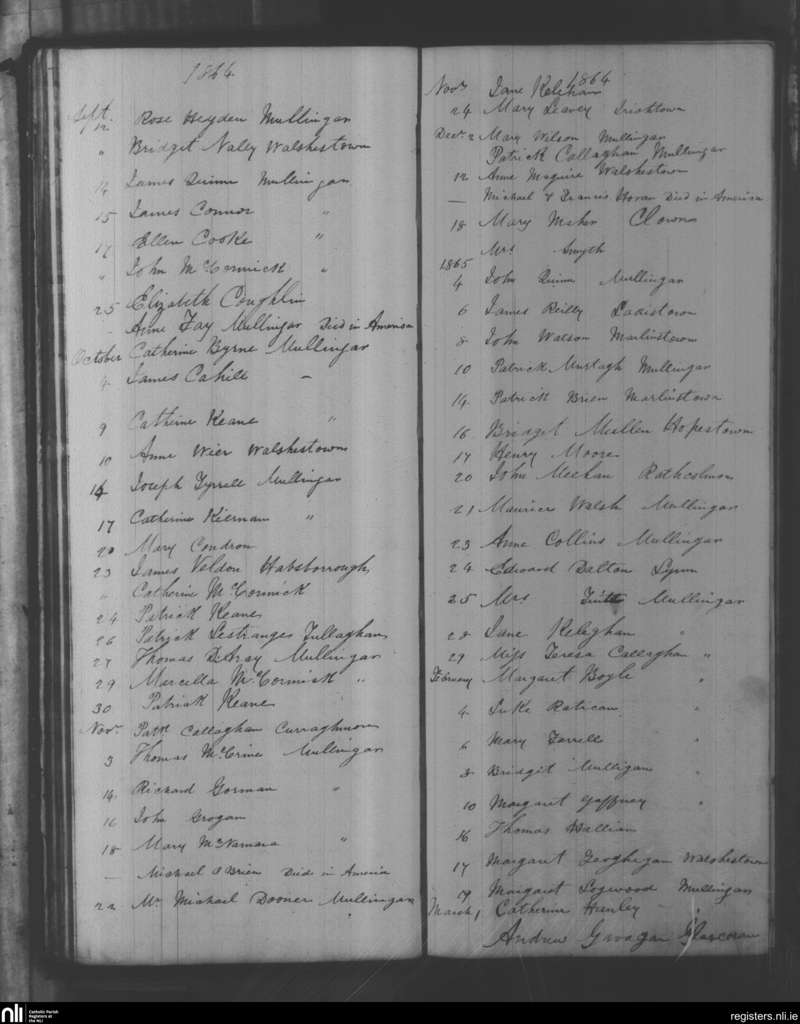 1864
Sept. 12 Rose Heyden Mullingar
" Bridget Nally Walshestown
14 James Quinn Mullingar
15 James Connor "
17 Ellen Cooke "
" John McCormick "
25 Elizabeth Coughlin
- Anne Fay Mullingar Died in America
October Catherine Byrne Mullingar
4 James Cahill -
9 Catherine Keane "
10 Anne Wier Walshestown
14 Joseph Tyrrell Mullingar
17 Catherine Kiernan "
20 Mary Condron
23 James Veldon Habsborrough
" Catherine McCormick
24 Patrick Keane
26 Patrick Lestranges Tullaghan
27 Thomas D'Arcy Mullingar
29 Marcella McCormick "
30 Patrick Keane
Novr. Patk Callaghan Curraghmore
3 Thomas McCrine Mullingar
14 Richard Gorman "
16 John Grogan
18 Mary McNamara "
- Michael O Brien Died in America
22 Mr Michael Dooner Mullingar
1864
Novr Jane Keleham
24 Mary Leavey Irishtown
Decr. 2 Mary Wilson Mullingar
Patrick Callaghan Mullingar
12 Anne Maguire Walshestown
- Michael & Francis Horan Died in America
18 Mary Clowns
Mrs Smyth
1865
4 John Quinn Mullingar
6 James Reilly Ladistown
8 John Watson Marlinstown
10 Patrick Murtagh Mullingar
14 Patrick Brien Marlinstown
16 Bridget Mullen Hopestown
17 Henry Moore
20 John Meehan Rathcolman
21 Maurice Walsh Mullingar
23 Anne Collins Mullingar
24 Edward Dalton Lynn
25 Mrs Mullingar
28 Jane Keleghan "
29 Miss Teresa Callaghan "
February Margaret Boyle "
4 Luke Ratican "
6 Mary Farrell "
8 Bridgit Mulligan "
10 Margaret Gaffney "
16 Thomas Hallian
17 Margaret Geoghegan Walshestown
19 Margaret Logwood Mullingar
March 1 Catherine Hanley -
Andrew Gavagan Glascorn
nli
Catholic Parish
Registers at
the NLI
registers.nli.ie